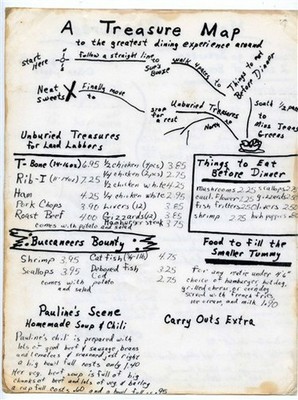 A Treasure Map
to the greatest dining experience around
Start Here
follow a straight line to
Booze
walk
to
Things to eat Before Dinner
Neat Sweets
X
Finally move to
stop for a rest
Unburied Treasures
North
South 1/2 pace to Miss Trena Greens
Unburied Treasures
for Land Lubbers
T-Bone (14-16oz) 6.95
Rib-I 7.25
Ham 4.25
Pork Chops 3.90
Roast Beef 4.00
1/2 chicken (4pcs) 3.85
1/4 chicken (2pcs) 2.75
1/2 chicken white 4.25
1/4 chicken white 2.95
Livers (12) 3.85
Gizzards (12) 3.85
Hamburger Steak 3.75
comes with potato and salad
Things to Eat
Before Dinner
mushrooms 2.25
cauliflower 2.25
fish fritters 2.50
shrimp 2.75
scallops
gizzards
livers
hot peppers
Buccaneers Bounty
Shrimp 3.95
Scallops 3.95
Catfish 4.75
Deboned fish 3.25
Cod 2.75
comes with potato
and salad
Food to fill the
Smaller Tummy
For any matie under 4'6"
choice of hamburger, hotdog,
grilled cheese, or corndog
served with french fries,
ice cream, and milk 1.40
Pauline's Scene
Homemade Soup & Chili
Carry Outs Extra
Pauline's chili is prepared with
lots of good beef & sausage, beans
and tomatoes & seasoned just right
a big bowl full costs only 1.40
Her veg. beef soup is full of big
chunks of beef and lots of veg & barley
a cup full costs .60 and a bowl full .95